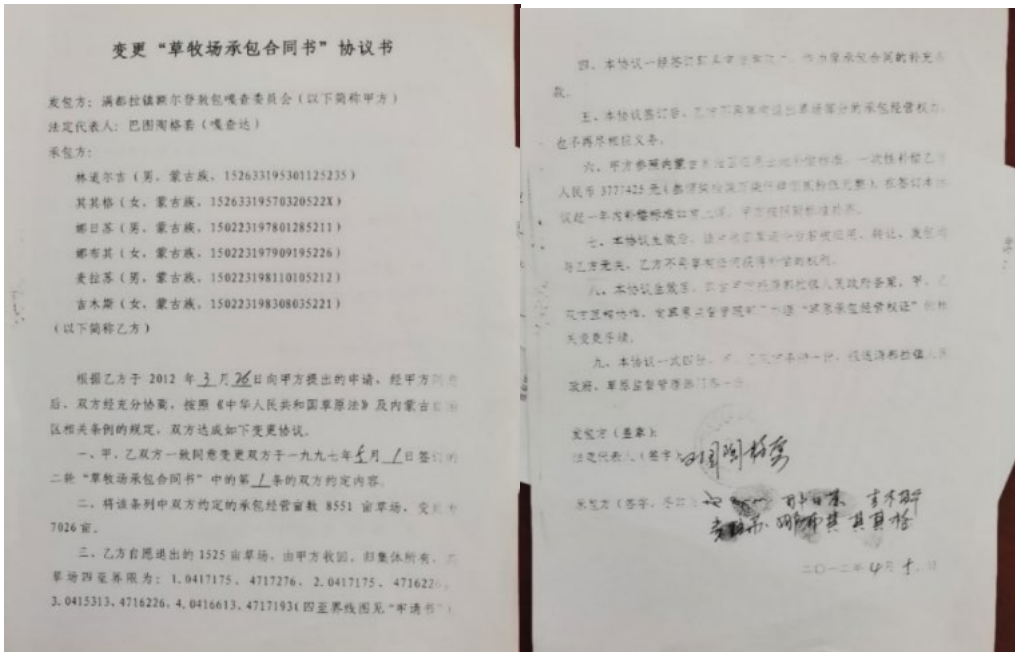 变更“草牧场承包合同书”协议书
发包方：满都拉镇额尔登敖包嘎查委员会（以下简称甲方）
法定代表人：巴图陶格套（嘎查达）
承包方：
林道尔吉（男，蒙古族，152633195301125235）
其其格（女，蒙古族，15263319570320522X）
娜日苏（男，蒙古族，150223197801285211）
娜布其（女，蒙古族，150223197909195226）
麦拉苏（男，蒙古族，150223198110105212）
吉木斯（女，蒙古族，150223198308035221）
（以下简称乙方）
根据乙方于 2012 年 3 月 26 日向甲方提出的申请，经甲方同意
后，双方经充分协商，按照《中华人民共和国草原法》及内蒙古自治
区相关条例的规定，双方达成如下变更协议。
一、甲、乙双方一致同意变更双方于一九九七年 5 月 1 日签订的
二轮“草牧场承包合同书”中的第 1 条的双方约定内容。
二、将该条列中双方约定的承包经营亩数 8551 亩草场，变更为
7026 亩。
三、乙方自愿退出的 1525 亩草场，由甲方收回，归集体所有，
草场四至界限为：1.0417175、4717276，2.0417175、4716226，
3.0415313、4716226，4.0416613、4717193（四至界线图见“申请书”）
四、本协议一经签订，作为原承包合同的补充条
款。
五、本协议签订后，乙方不再享有退出草场部分的承包经营权力，
也不再尽相应义务。
六、甲方参照内蒙古补偿标准，一次性补偿乙方
人民币 3777425 元，在签订本协
议起一年内补偿标准如有上调，甲方按照新标准补齐。
七、本协议生效后，转让、发包均
与乙方无关，乙方不再享有任何获得补偿的权利。
八、本协议生效后，满都拉镇人民政府备案，甲、乙
双方互相协作，“草原承包经营权证”的相
关变更手续。
九、本协议一式四份，甲、乙双方各持一份，报送满都拉镇人民
政府、草原监督管理部门各一份。
发包方（签章）：
法定代表人（签字）：巴图陶格套
承包方（签字、手印）：娜日苏 吉木斯
麦拉苏 娜布其 其其格
二〇一二年 4 月 日